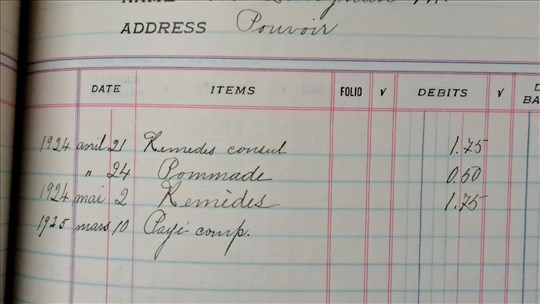 ADDRESS Pouvoir
DATE ITEMS FOLIO √ DEBITS √
1924 avril 21 Remedes consul 1.75
" 24 Pommade 0.50
1924 mai 2 Remèdes 1.75
1925 mars 10 Payé comp.